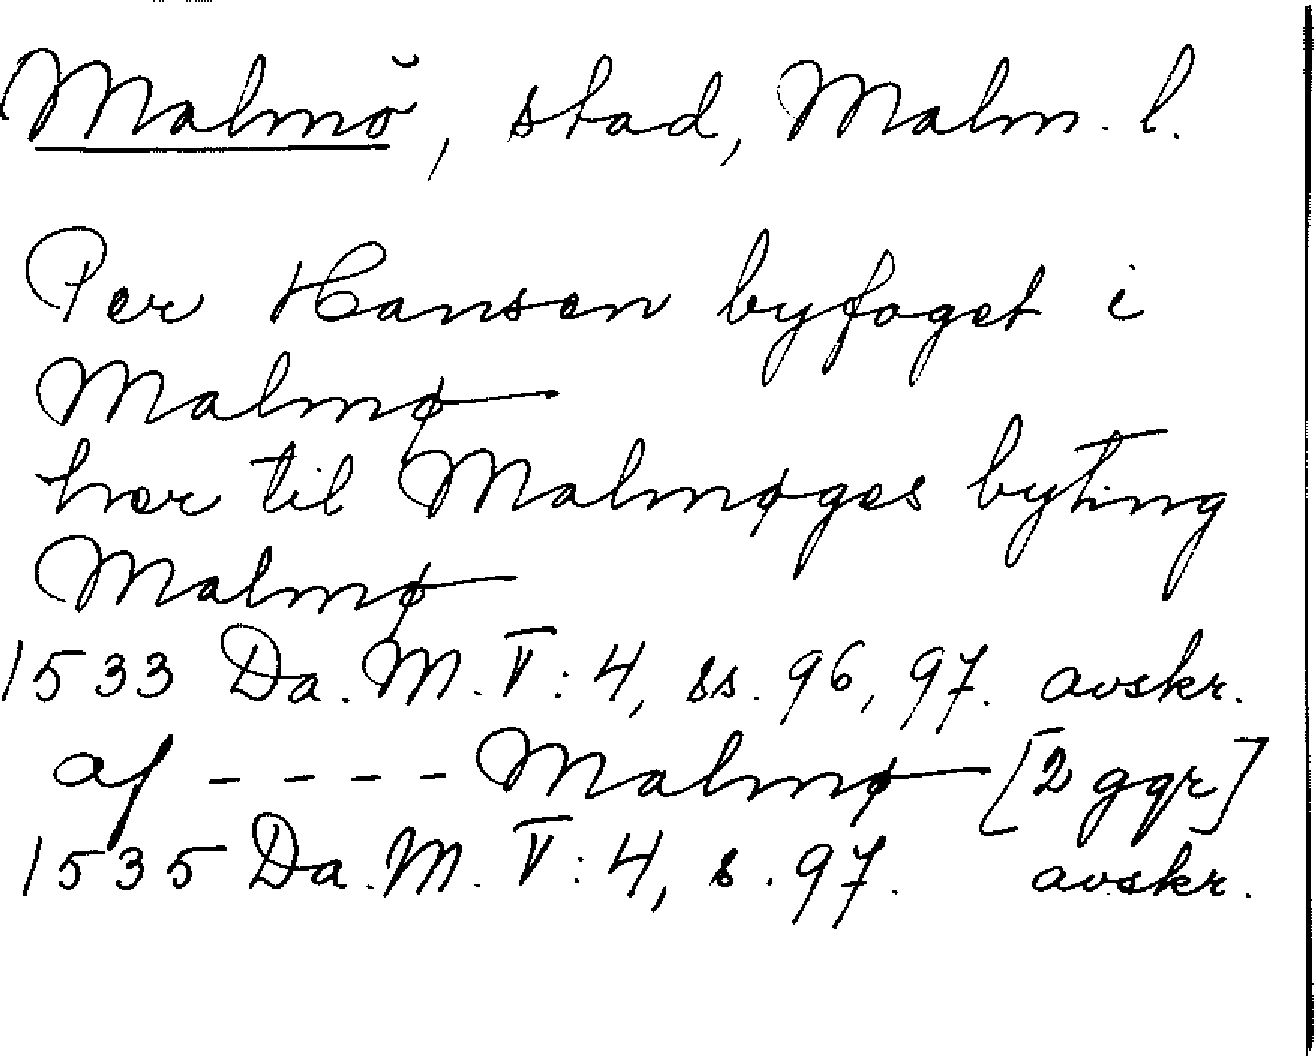 Malmö, stad, Malm. l.
Per Hansen byfoget i
Malmø
hær til Malmøges byting
Malmø
1533 Da. M. V: 4, ss. 96, 97. avskr.
af - - - - Malmø [2 ggr]
1535 Da. M. V: 4, s. 97. avskr.